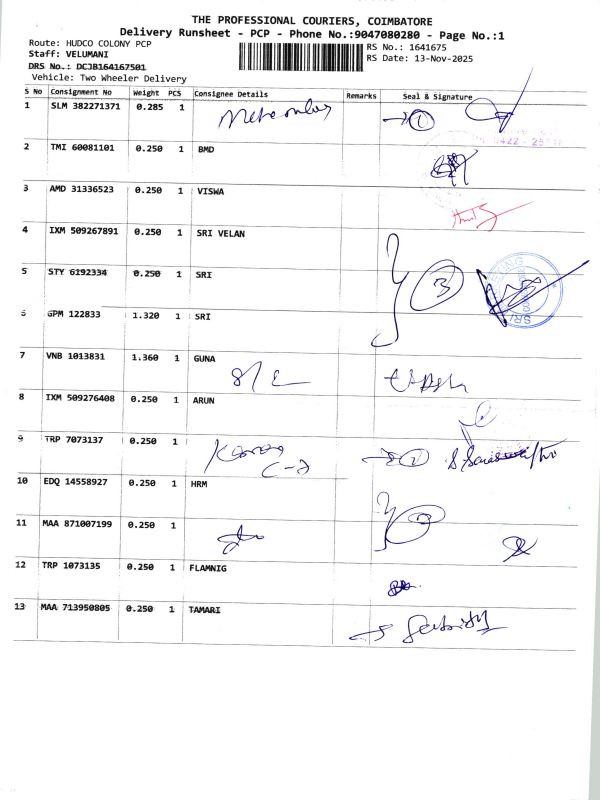 THE PROFESSIONAL COURIERS, COIMBATORE
Delivery Runsheet - PCP - Phone No.:9047080280 - Page No.:1
Route: HUDCO COLONY PCP RS No.: 1641675
Staff: VELUMANI RS Date: 13-Nov-2025
DRS No.: DCJB164167501
Vehicle: Two Wheeler Delivery
S No Consignment No Weight PCS Consignee Details Remarks Seal & Signature
1 SLM 382271371 0.285 1 1
2 TMI 60081101 0.250 1 BMD
3 AMD 31336523 0.250 1 VISWA
4 IXM 509267891 0.250 1 SRI VELAN
5 STY 6192334 0.250 1 SRI 3
6 GPM 122833 1.320 1 SRI
7 VNB 1013831 1.360 1 GUNA
8 IXM 509276408 0.250 1 ARUN
9 TRP 7073137 0.250 1
10 EDQ 14558927 0.250 1 HRM
11 MAA 871007199 0.250 1
12 TRP 1073135 0.250 1 FLAMNIG
13 MAA 713950805 0.250 1 TAMARI